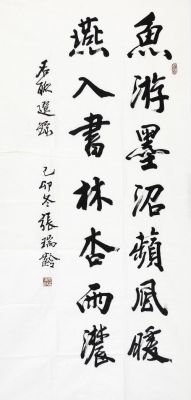 魚游墨沼蘋風暖
燕入書林杏雨濃
君歐選錄
己卯冬張瑞齡